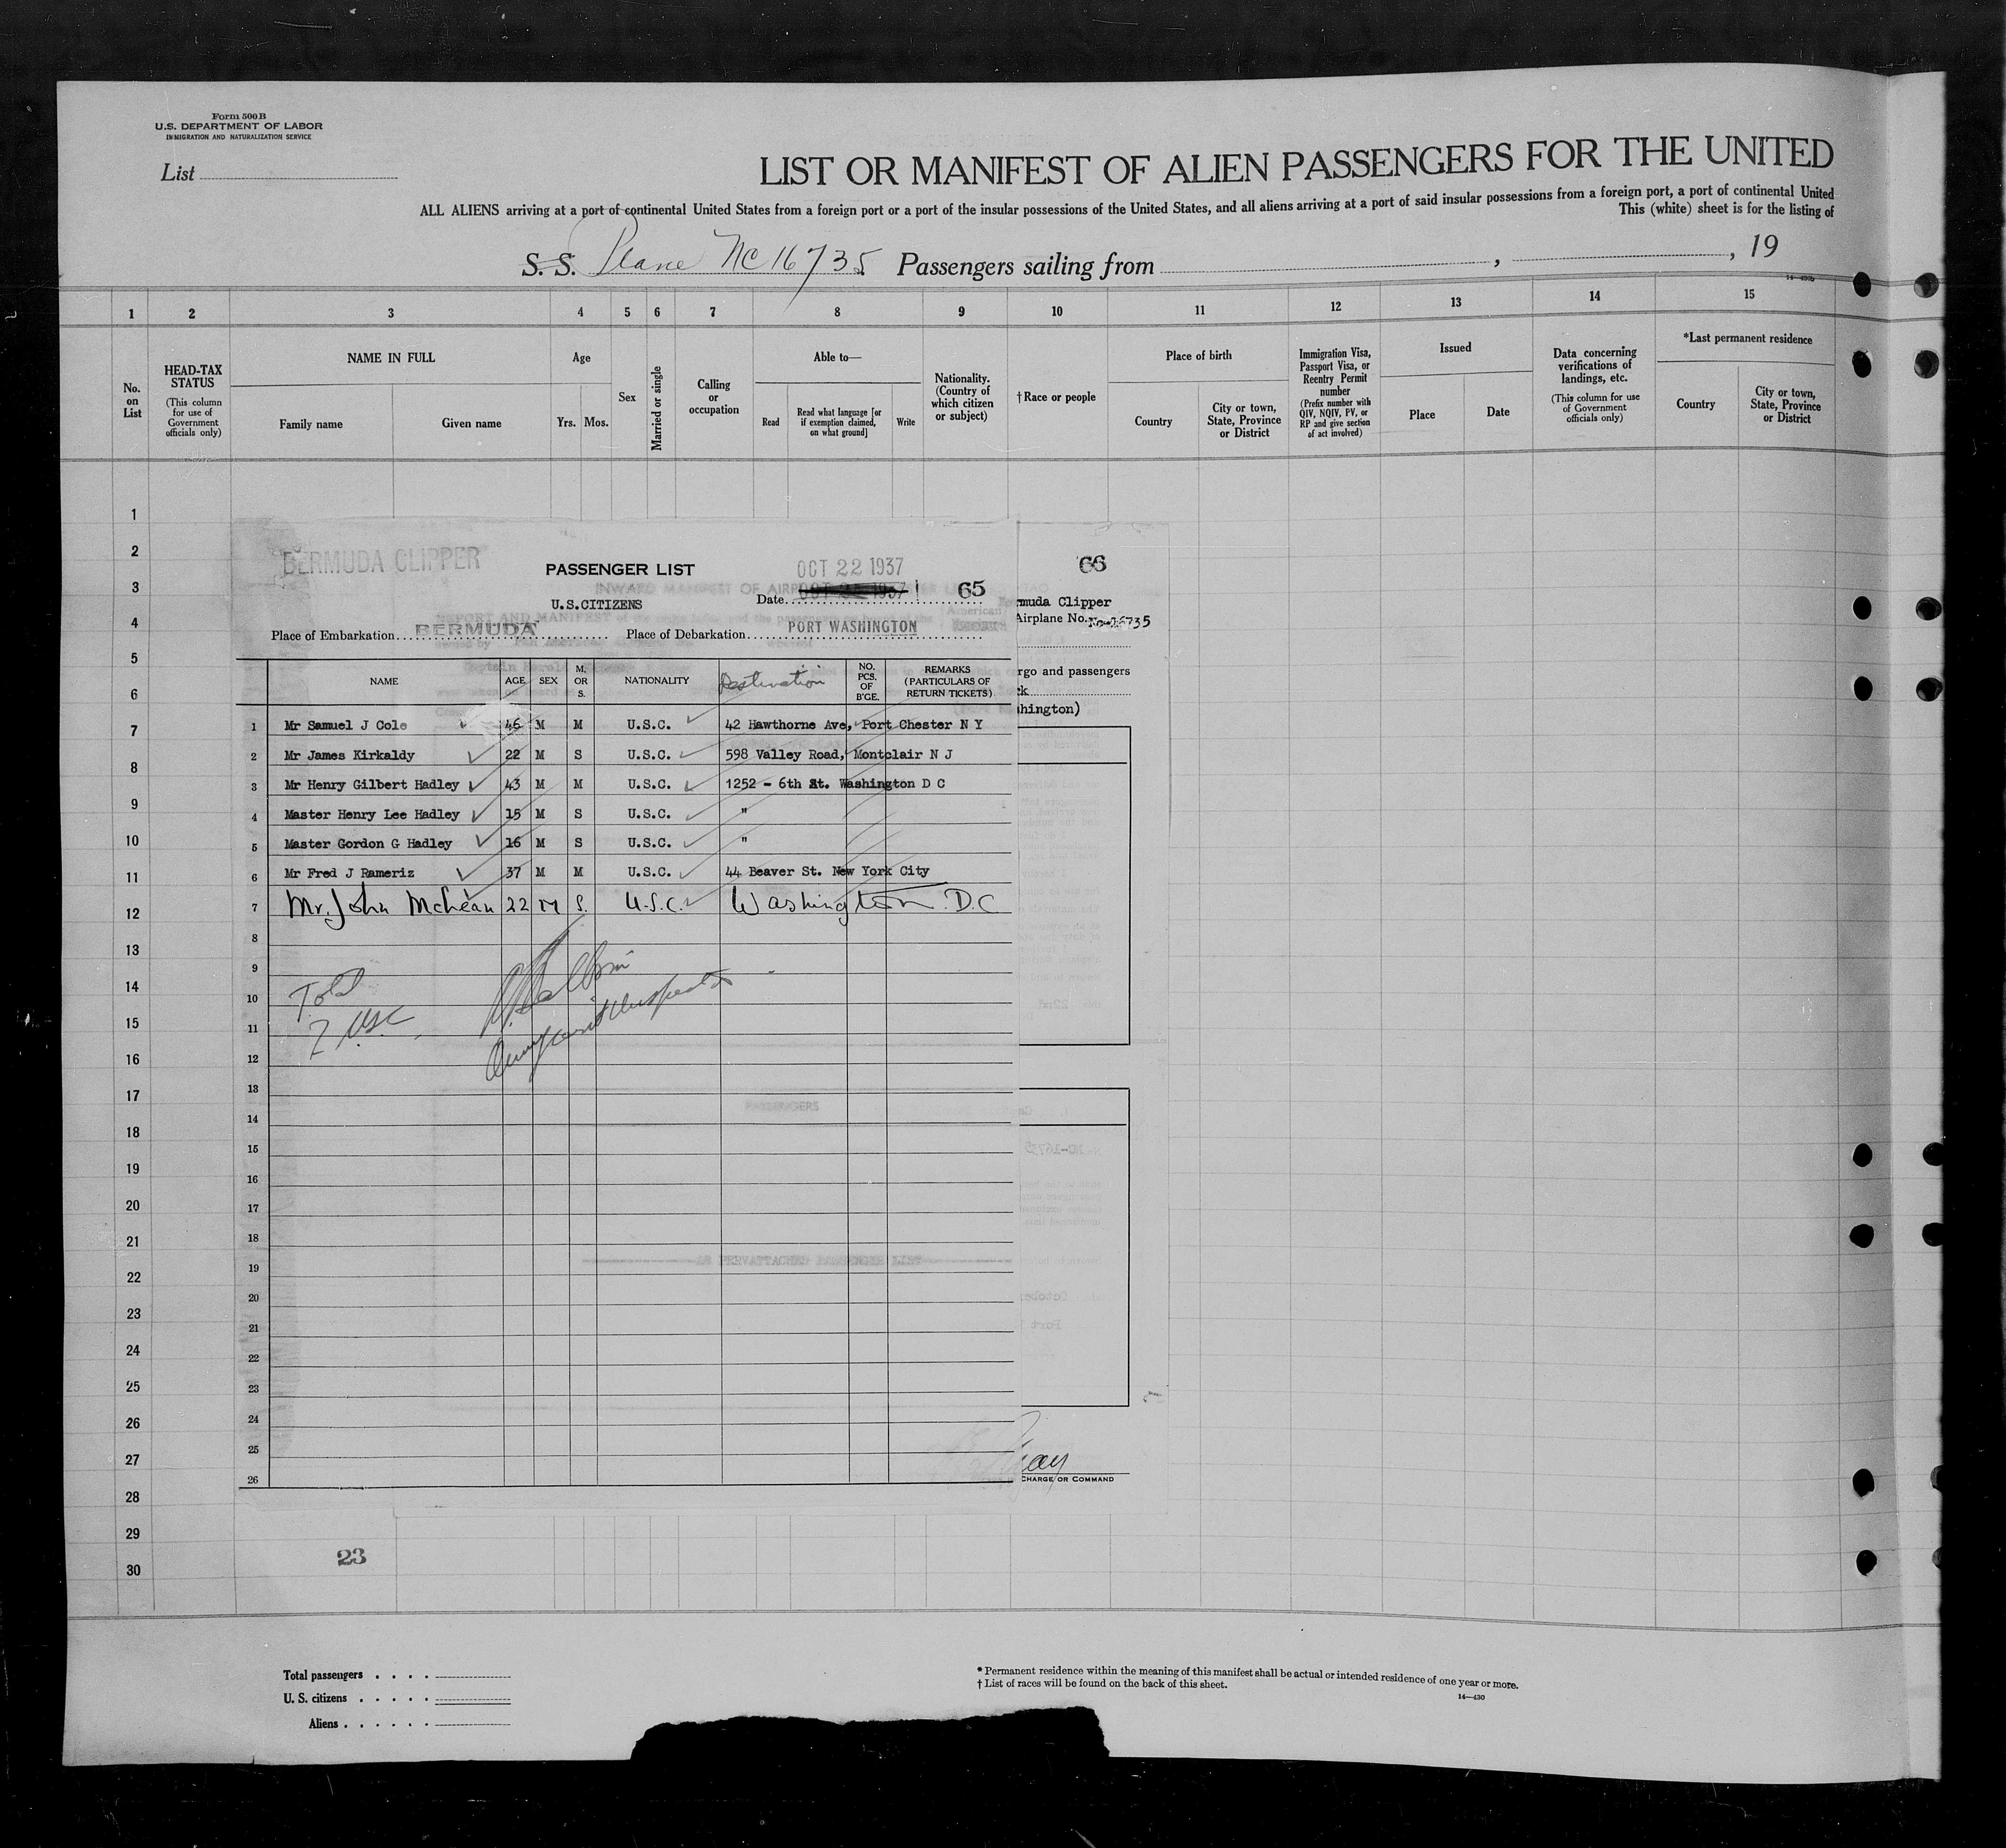 Form 500B
U.S. DEPARTMENT OF LABOR
IMMIGRATION AND NATURALIZATION SERVICE
List
LIST OR MANIFEST OF ALIEN PASSENGERS FOR THE UNITED
ALL ALIENS arriving at a port of continental United States from a foreign port or a port of the insular possessions of the United States, and all aliens arriving at a port of said insular possessions from a foreign port, a port of continental United
This (white) sheet is for the listing of
S. S. Plane NC 16735 Passengers sailing from , , 19
1 2 3 4 5 6 7 8 9 10 11 12 13 14 15
No. on List
HEAD-TAX STATUS (This column for use of Government officials only)
NAME IN FULL
Family name Given name
Age
Yrs. Mos.
Sex
Married or single
Calling or occupation
Able to—
Read
Read what language [or if exemption claimed, on what ground]
Write
Nationality. (Country of which citizen or subject)
†Race or people
Place of birth
Country
City or town, State, Province or District
Immigration Visa, Passport Visa, or Reentry Permit number (Prefix number with QIV, NQIV, PV, or RP and give section of act involved)
Issued
Place Date
Data concerning verifications of landings, etc. (This column for use of Government officials only)
*Last permanent residence
Country
City or town, State, Province or District
1
2
3
4
5
6
7
8
9
10
11
12
13
14
15
16
17
18
19
20
21
22
23
24
25
26
27
28
29
30
BERMUDA CLIPPER
PASSENGER LIST
OCT 22 1937
U.S.CITIZENS
Date
65
Place of Embarkation BERMUDA Place of Debarkation PORT WASHINGTON
NAME AGE SEX M. OR S. NATIONALITY Destination NO. PCS. OF B'GE. REMARKS (PARTICULARS OF RETURN TICKETS)
1 Mr Samuel J Cole 46 M M U.S.C. 42 Hawthorne Ave, Port Chester N Y
2 Mr James Kirkaldy 22 M S U.S.C. 598 Valley Road, Montclair N J
3 Mr Henry Gilbert Hadley 43 M M U.S.C. 1252 - 6th St. Washington D C
4 Master Henry Lee Hadley 15 M S U.S.C. "
5 Master Gordon G Hadley 16 M S U.S.C. "
6 Mr Fred J Rameriz 37 M M U.S.C. 44 Beaver St. New York City
7 Mr. John McLean 22 M S. U.S.C. Washington D.C
8
9
10
11
12
13
14
15
16
17
18
19
20
21
22
23
24
25
26
Total
7 USC
66
rmuda Clipper
Airplane No. 16735
rgo and passengers
k
hington)
CHARGE OR COMMAND
23
Total passengers
U. S. citizens
Aliens
* Permanent residence within the meaning of this manifest shall be actual or intended residence of one year or more.
† List of races will be found on the back of this sheet.
14—430